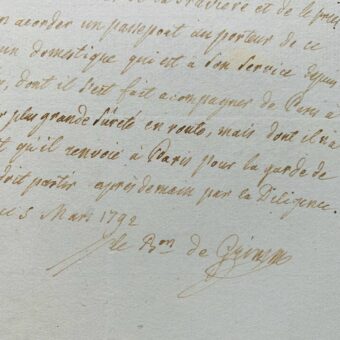 et de le prier
accorder un passeport au porteur de ce
un domestique qui est à son service depuis
dont il s'est fait acompagner de Paris à
plus grande sureté en route, mais dont il n'a
qu'il renvoie à Paris pour la garde de
doit partir après demain par la Diligence.
ce 5 Mars 1792
le Bon de